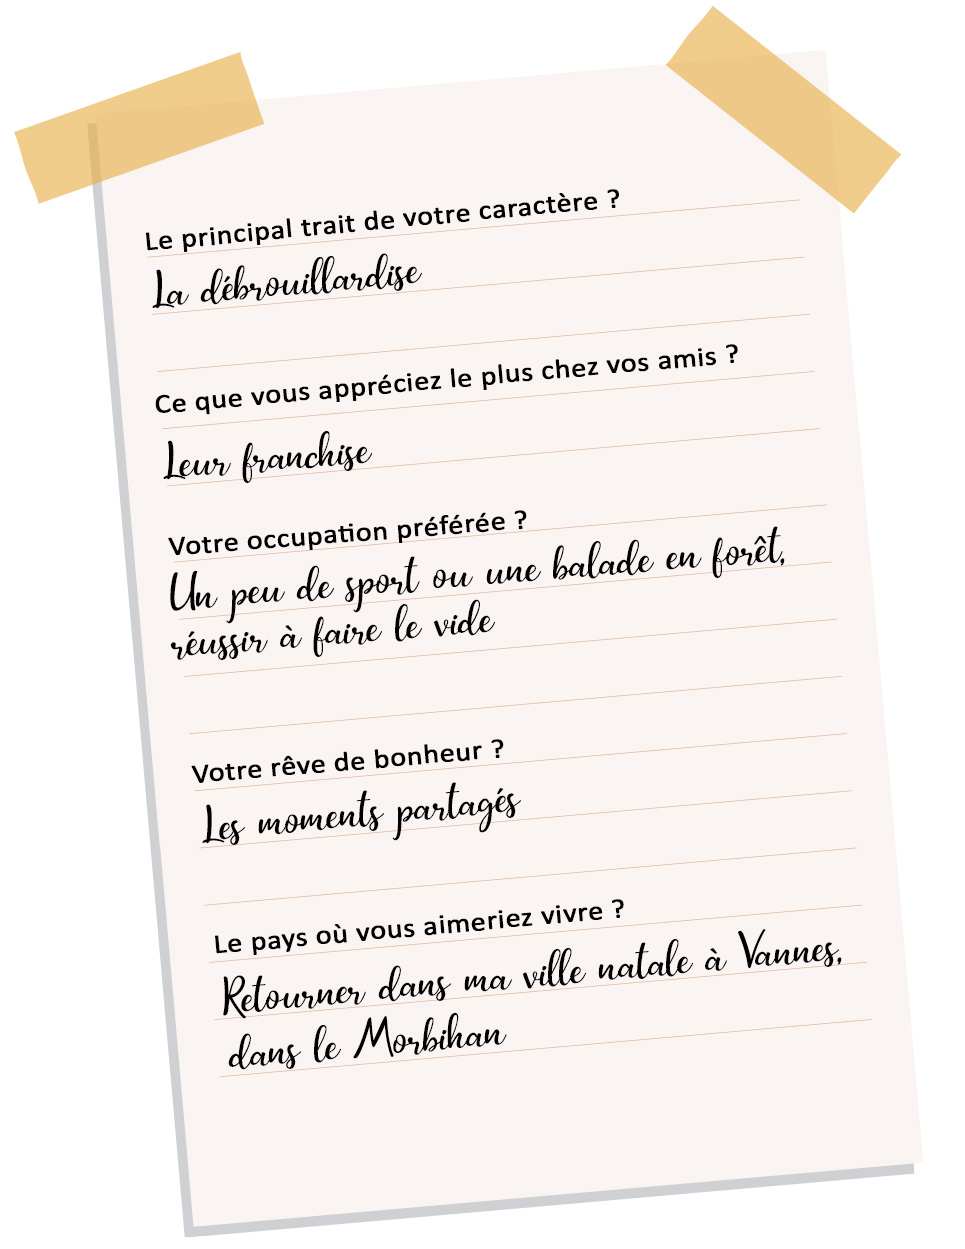 Le principal trait de votre caractère ?
La débrouillardise
Ce que vous appréciez le plus chez vos amis ?
Leur franchise
Votre occupation préférée ?
Un peu de sport ou une balade en forêt,
réussir à faire le vide
Votre rêve de bonheur ?
Les moments partagés
Le pays où vous aimeriez vivre ?
Retourner dans ma ville natale à Vannes,
dans le Morbihan